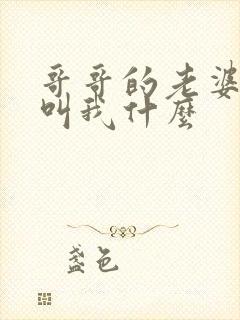 哥哥的老婆
叫我什麼
盏色